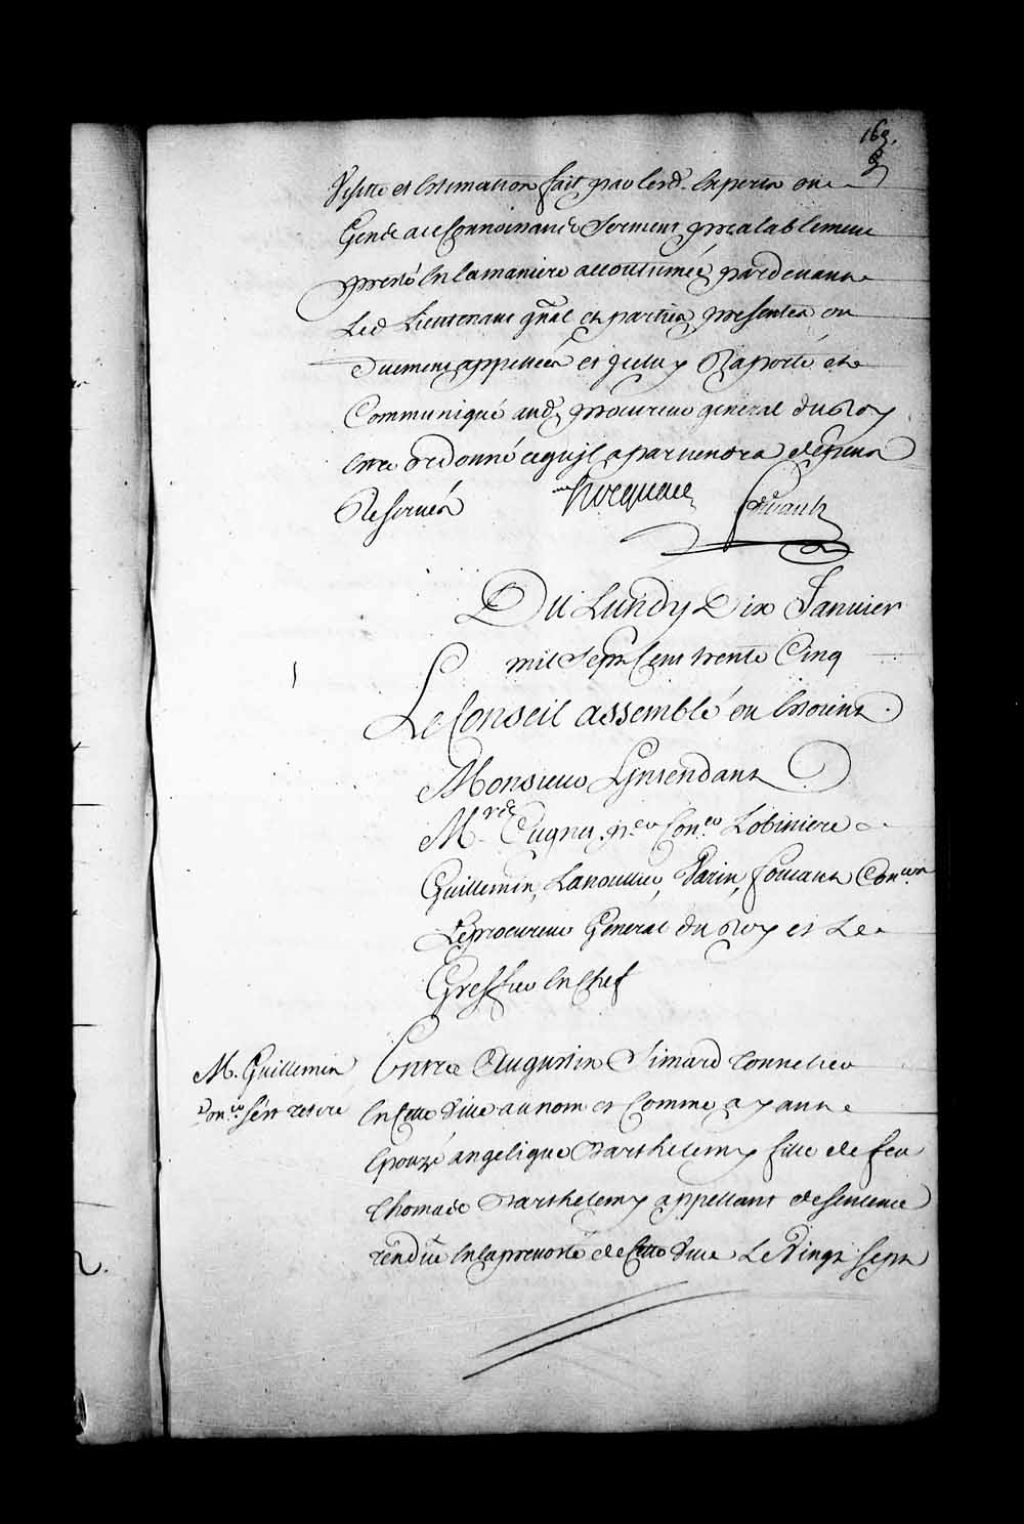 163.
Visitte et Estimation fait par lesd. Experts ou
Gens a ce Connoissans Serment prealablement
presté En la maniere accoutumée pardevant
Led Lieutenant gnal et parties presentes ou
Duement appellées et iceluy Raporté et
Communiqué aud. procureur general du Roy
Estre ordonné ce qu'il apartiendra depens
Reservés
hocquart foucault
Du Lundy Dix Janvier
mil Sept Cent trente Cinq
Le Conseil assemblé ou Etoient
Monsieur L'jntendant
Mrs. Cugnet, per Coner Lotbiniere
Guillemin, Lanoullier, Varin, foucault Coners
Le procureur General du Roy et Le
Greffier En Chef
M. Guillemin
Coner s'en retire
Entre Augustin Simard Tonnelier
En Cette Ville au nom et Comme ayant
Epouzé angelique Barthelemy fille de feu
Thomas Barthelemy appellant de sentence
rendüe En la prevosté de Cette Ville Le Vingt Sept